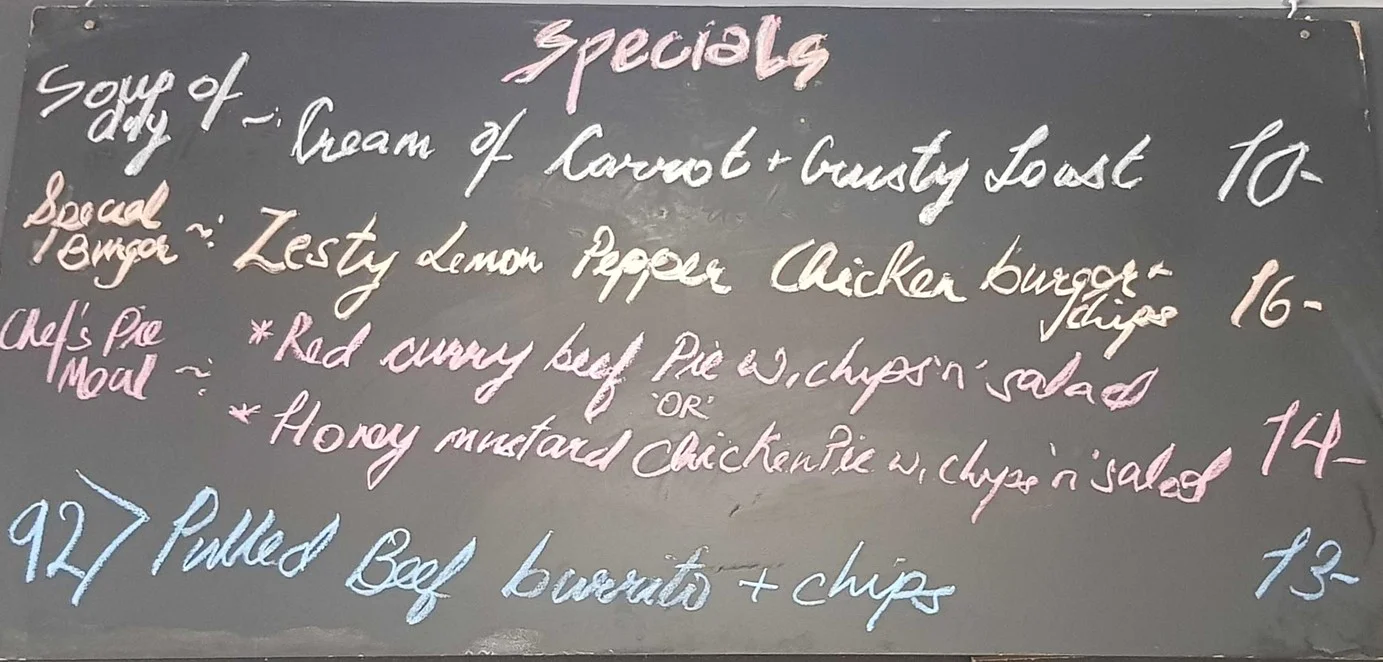 Specials
Soup of day ~: Cream of Carrot + Crusty Toast 10-
Special Burger ~: Zesty Lemon Pepper Chicken burger + chips 16-
Chef's Pie Meal ~: *Red curry beef Pie w, chips 'n' salad
'OR'
*Honey mustard Chicken Pie w, chips 'n' salad 14-
92> Pulled Beef burrito + chips 13-